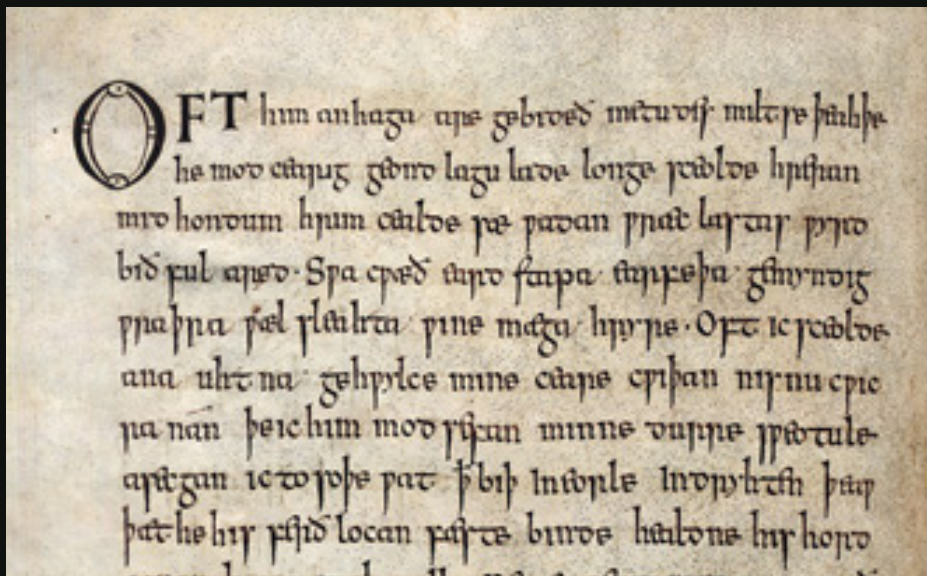 OFT him anhaga are gebideð metudes miltse þeahþe
he modcearig geond lagu lade longe sceolde hreran
mid hondum hrim cealde sæ wadan wræc lastas wyrd
bið ful aræd· Swa cwæð eard stapa earfeþa gemyndig
wraþra wæl sleahta wine mæga hryre· Oft ic sceolde
ana uhtna gehwylce mine ceare cwiþan nis nu cwic
ra nan þe ic him mod sefan minne durre sweotule
asecgan ic to soþe wat þ̄ biþ Ineorle Indryhten þeaw
þæt he his ferð locan fæste binde healdne his hord